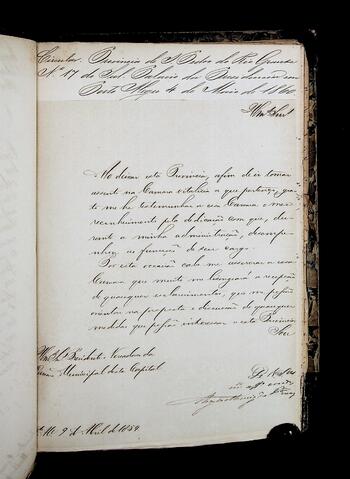 Circular. Provincia de S. Pedro do Rio Grande
Nº 17 do Sul. Palacio da Presidencia em
Porto Alegre 4 de Maio de 1860
Illmos Snrs
Ao deixar esta Provincia, afim de ir tomar
assento na Camara vitalicia a que pertenço, gra-
to me he testemunhar a essa Camara o meu
reconhecimento pela dedicação com que, du-
rante a minha administração, desempe-
nhou as funcções de seu cargo.
Por esta occasião cabe me assegurar a essa
Camara que muito me lisongeará a recepção
de quaesquer esclarecimentos, que me possão
orientar na proposta e discussão de quaesquer
medidas que possão interessar a esta Provincia
Sou
Illmos Srs Presidente e Vereadores da
Camara Municipal desta Capital
De Vas Sas